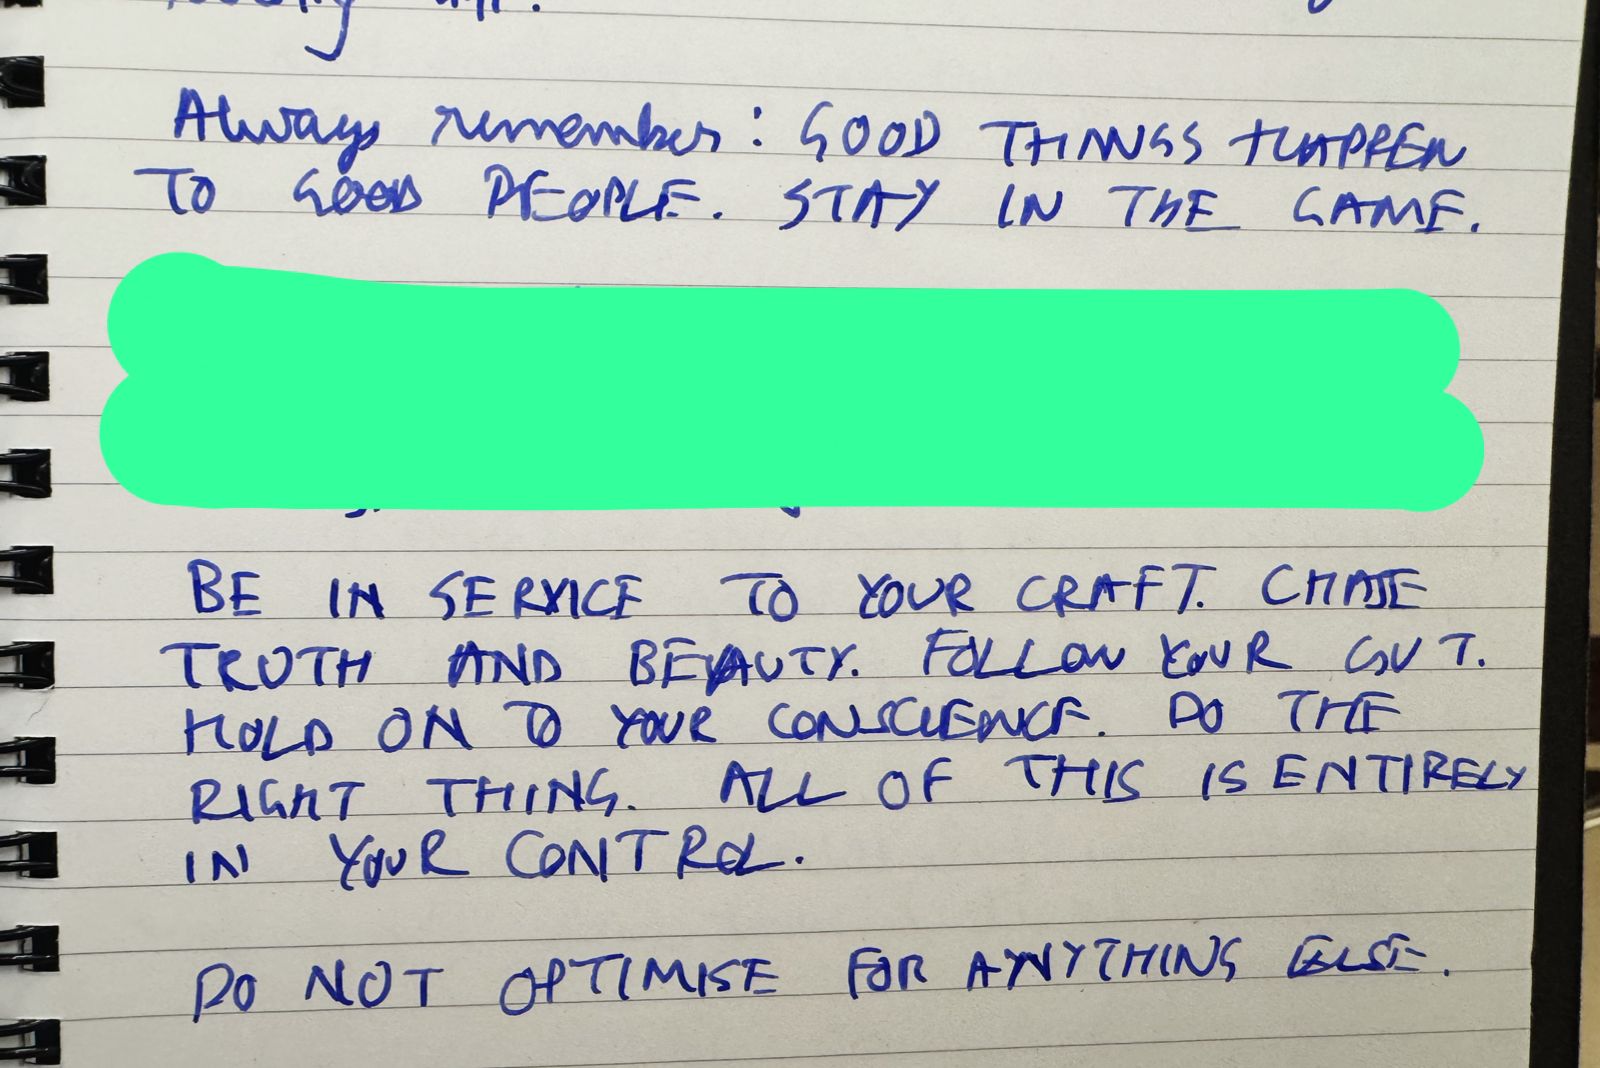 Always remember: GOOD THINGS HAPPEN
TO GOOD PEOPLE. STAY IN THE GAME.
BE IN SERVICE TO YOUR CRAFT. CHASE
TRUTH AND BEAUTY. FOLLOW YOUR GUT.
HOLD ON TO YOUR CONSCIENCE. DO THE
RIGHT THING. ALL OF THIS IS ENTIRELY
IN YOUR CONTROL.
DO NOT OPTIMISE FOR ANYTHING ELSE.